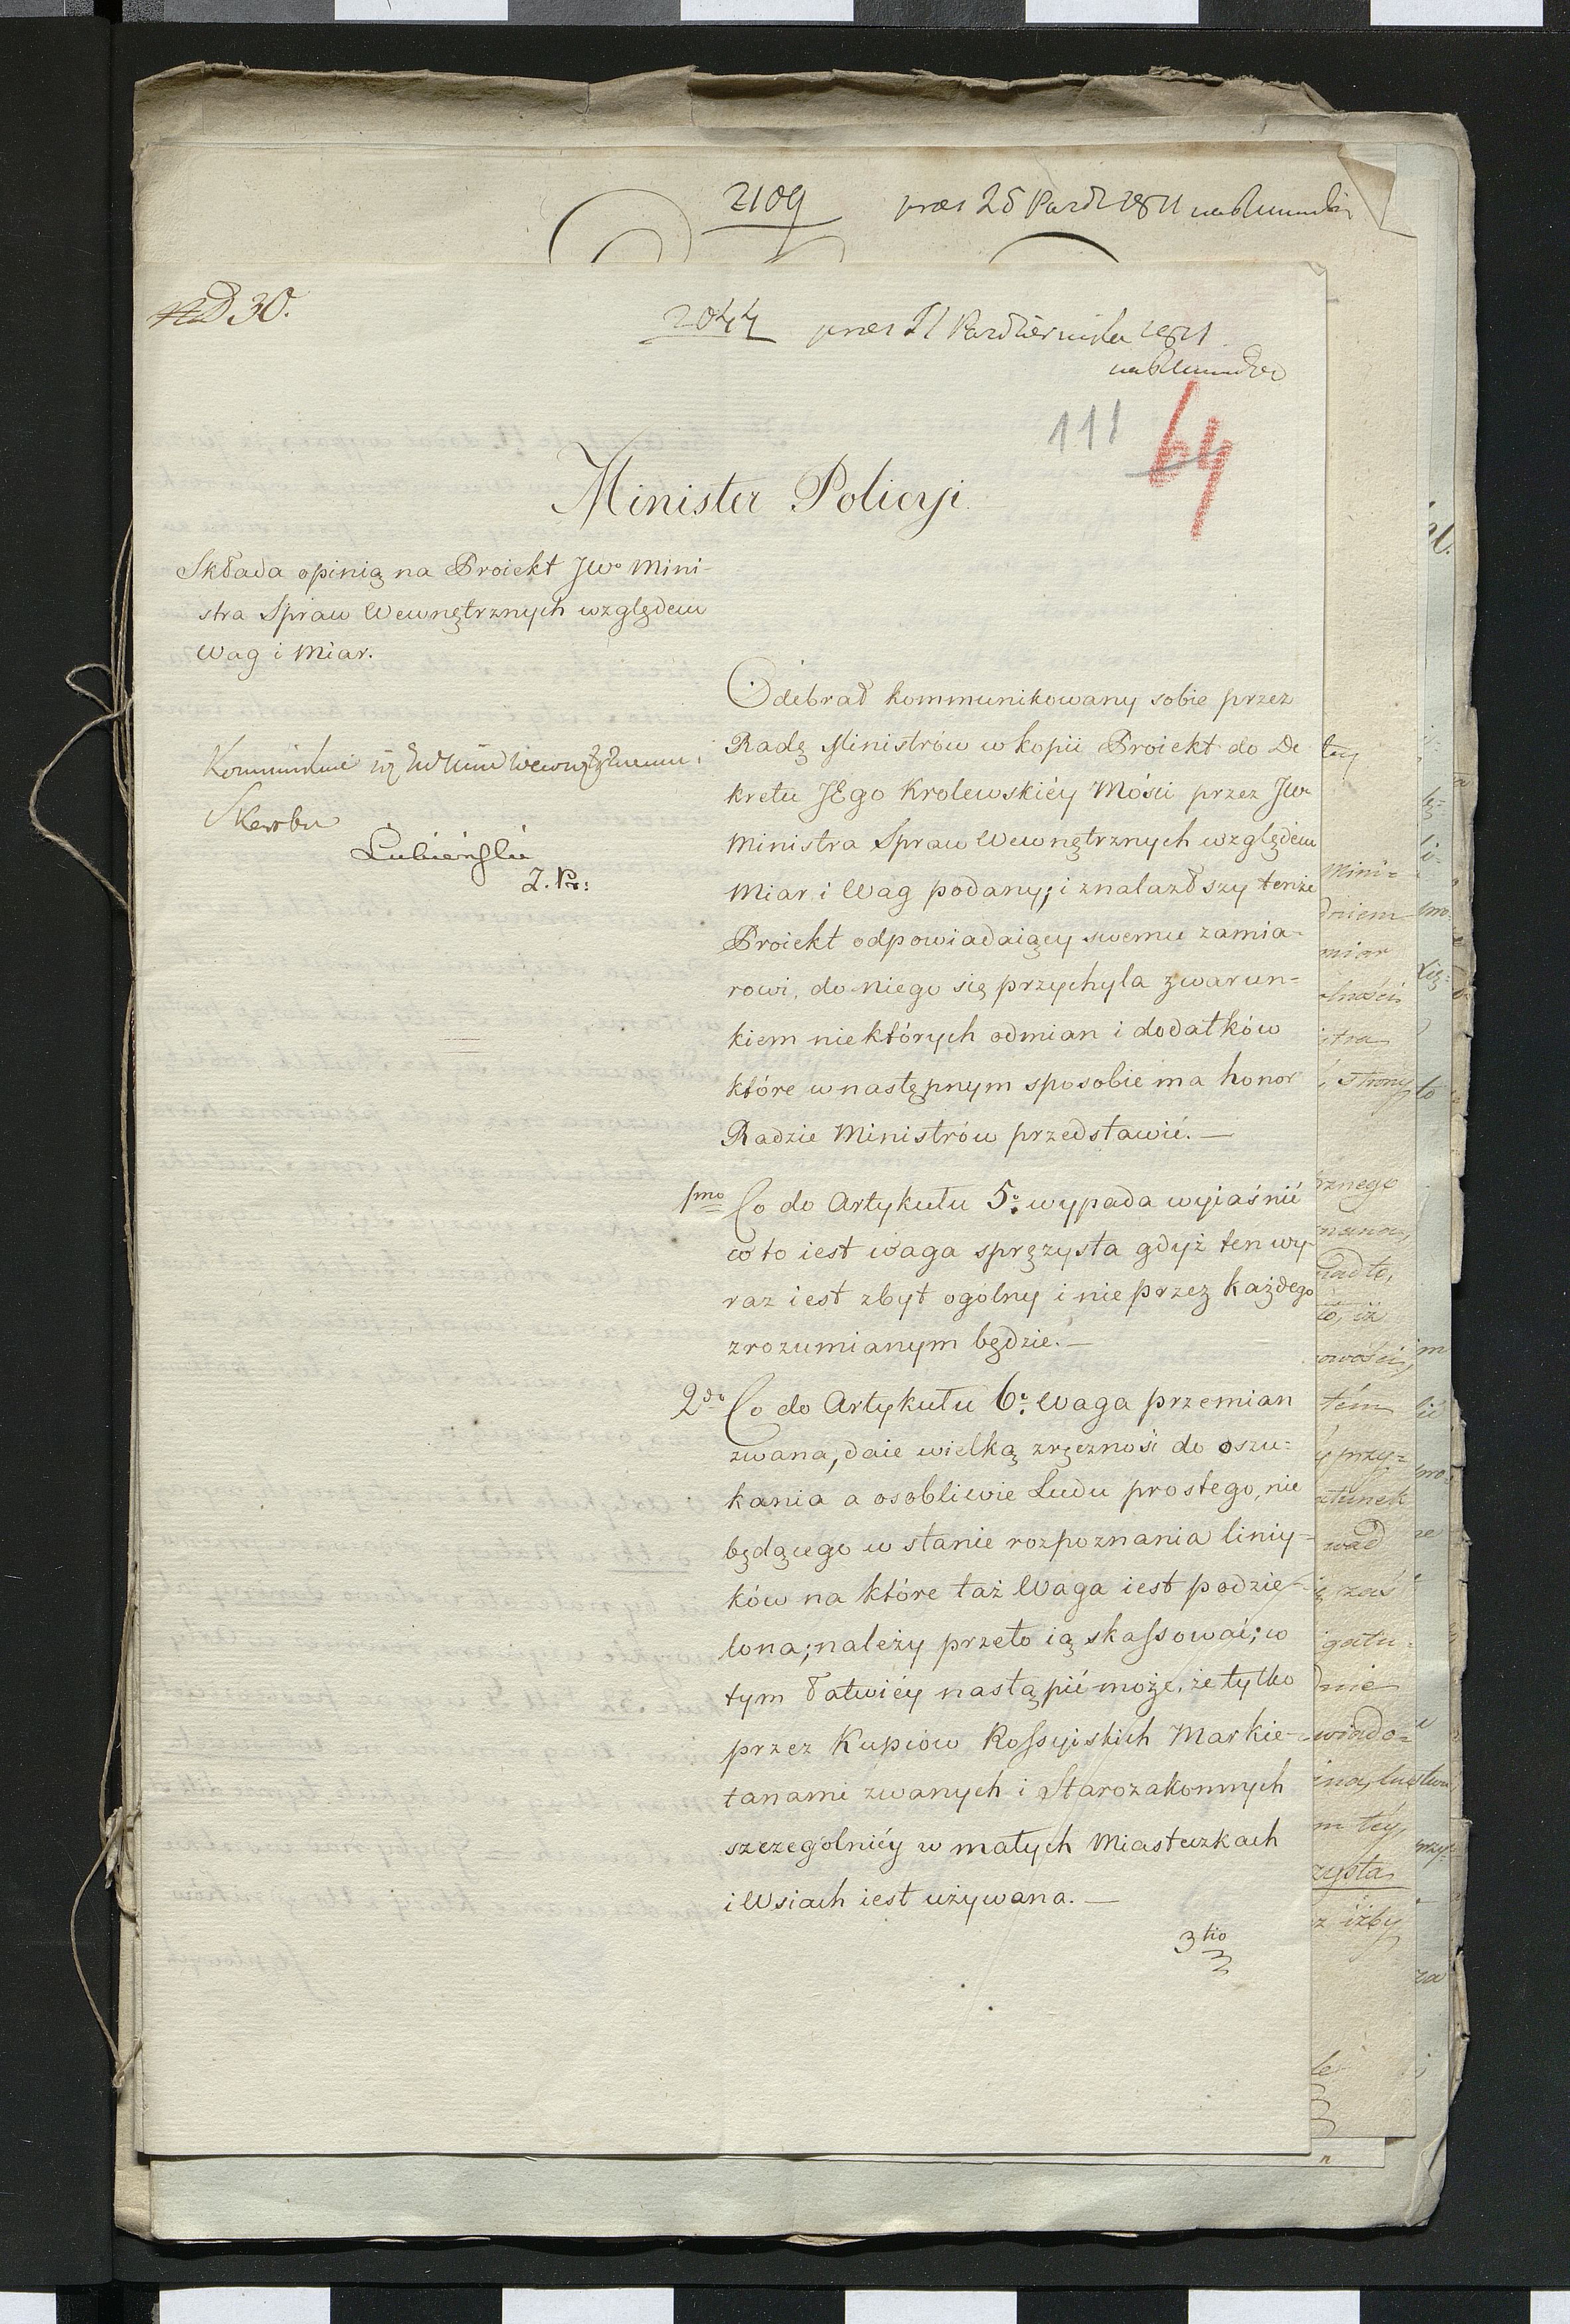 2109 pres 25 Paźd 1811
Nro 30.
2044 pres 21 Października 1811
111 64
Minister Policyi
Składa opinią na Proiekt JWo Mini-
stra Spraw Wewnętrznych względem
Wag i Miar.
Skarbu
Łubieński
Odebrał kommunikowany sobie przez
Radę Ministrów w kopii Proiekt do De
kretu JEgo Krolewskiéy Mości przez JW
Ministra Spraw Wewnętrznych względem
Miar i Wag podany; i znalazłszy tenże
Proiekt odpowiadaiący swemu zamia-
rowi, do niego się przychyla z warun-
kiem niektórych odmian i dodatków
które w następnym sposobie ma honor
Radzie Ministrów przedstawić. —
pmo Co do Artykułu 5o wypada wyiaśnić
co to iest waga sprężysta gdyż ten wy-
raz iest zbyt ogólny i nie przez każdego
zrozumianym będzie. —
2do Co do Artykułu 6o Waga przemian
zwana, daie wielką zręczność do oszu-
kania a osobliwie Ludu prostego, nie
będącego w stanie rozpoznania liniy-
ków na które taż Waga iest podzie-
lona; należy przeto ią skassować; co
tym łatwiéy nastąpić może, że tylko
przez Kupców Rossyiskich Markie-
tanami zwanych i Starozakonnych
szczególniéy w małych Miasteczkach
i Wsiach iest używana. —
3tio
tey
Mini-
dniem
miar
stra
strony
cznego
to, iż
tém
przy-
wał
zaś
gatu-
dnie
wiado-
m téy
zysta
iżby